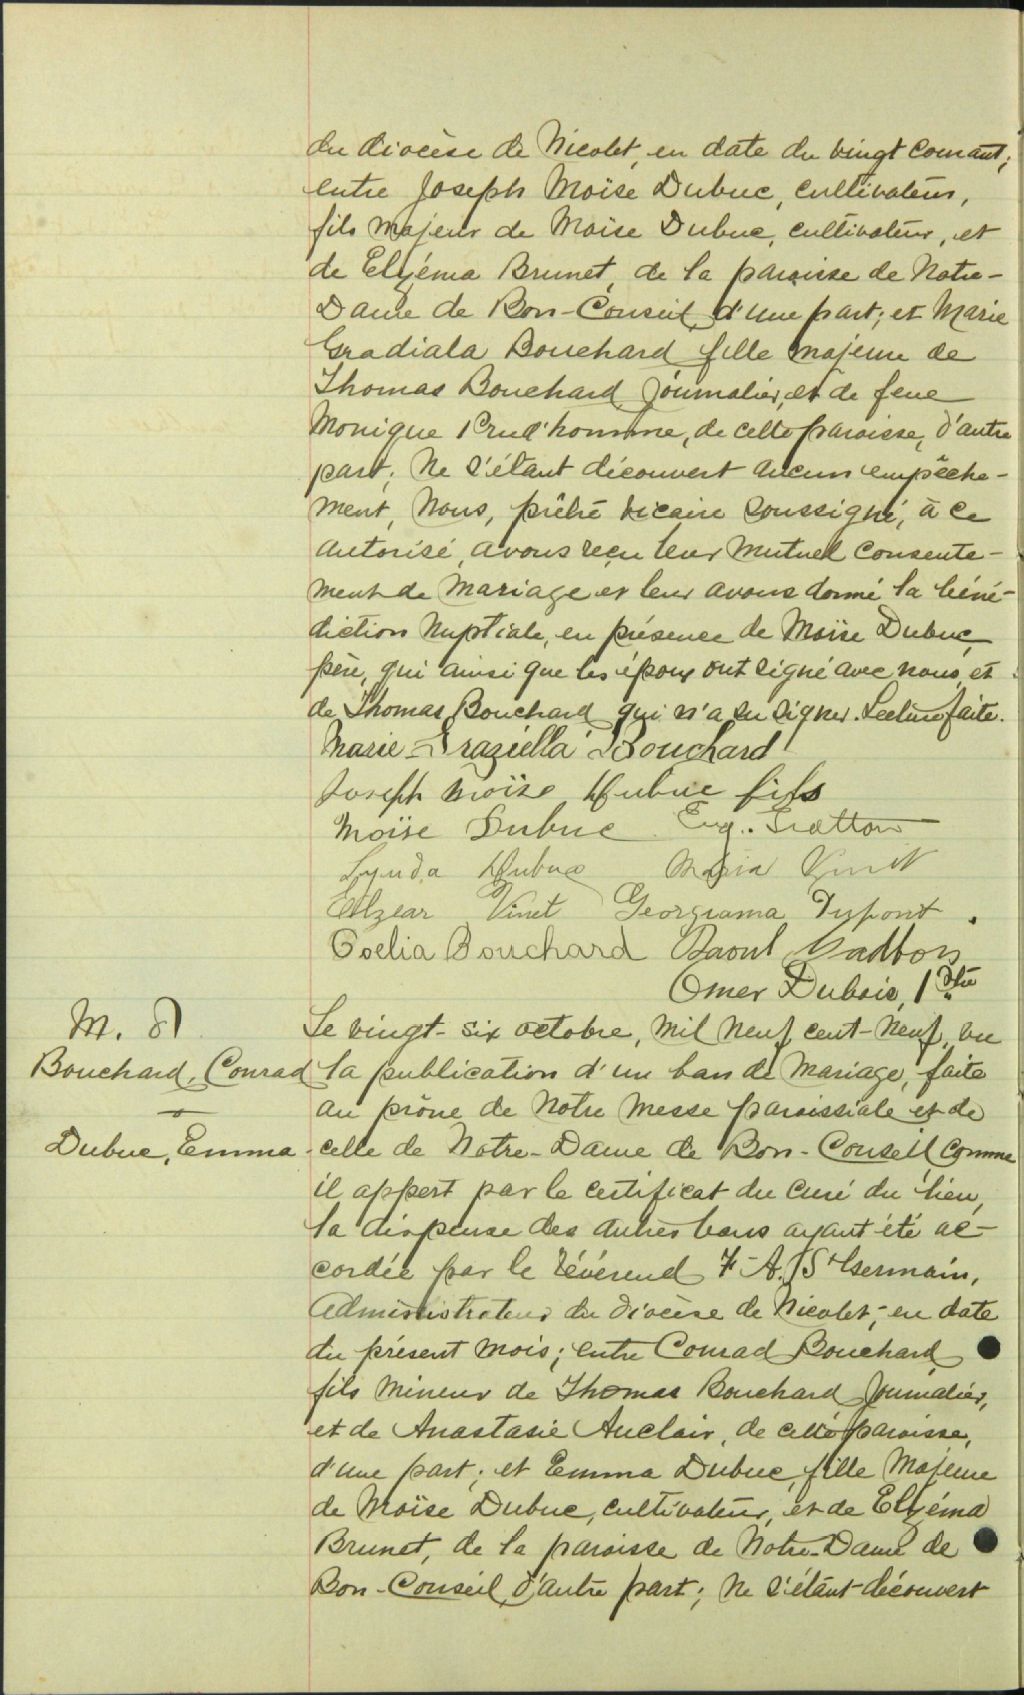 du diocèse de Nicolet, en date du vingt courant;
entre Joseph Moïse Dubuc, cultivateur,
fils majeur de Moïse Dubuc, cultivateur, et
de Elzéma Brunet, de la paroisse de Notre-
Dame de Bon-Conseil, d'une part; et Marie
Gradiala Bouchard fille majeure de
Thomas Bouchard, journalier, et de feue
Monique Prud'homme, de cette paroisse, d'autre
part; ne s'étant découvert aucun empêche-
ment, Nous, prêtre vicaire soussigné, à ce
autorisé, avons reçu leur mutuel consente-
ment de mariage et leur avons donné la béné-
diction nuptiale, en présence de Moïse Dubuc,
père, qui ainsi que les époux ont signé avec nous, et
de Thomas Bouchard qui n'a su signer. Lecture faite.
Marie-Graziella Bouchard
Joseph Moïse Dubuc fils
Moïse Dubuc Eug. Gratton
Lynda Dubuc Maria Vinet
Elzear Vinet Georgianna Dupont.
Coelia Bouchard Raoul
Omer Dubois, Ptre
M. 8
Bouchard, Conrad
Dubuc, Emma
Le vingt-six octobre, mil neuf cent-neuf, vu
la publication d'un ban de mariage, faite
au prône de notre messe paroissiale et de
celle de Notre-Dame de Bon-Conseil, comme
il appert par le certificat du curé du lieu,
la dispense des autres bans ayant été ac-
cordée par le révérend A. St Germain,
Administrateur du diocèse de Nicolet, en date
du présent mois; entre Conrad Bouchard,
fils mineur de Thomas Bouchard, journalier,
et de Anastasie Auclair, de cette paroisse,
d'une part; et Emma Dubuc, fille majeure
de Moïse Dubuc, cultivateur, et de Elzéma
Brunet, de la paroisse de Notre-Dame de
Bon-Conseil, d'autre part; ne s'étant découvert